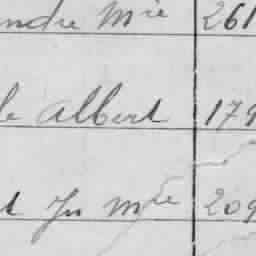 ndre Mie 261
le Albert 179
t Jn Mie 209